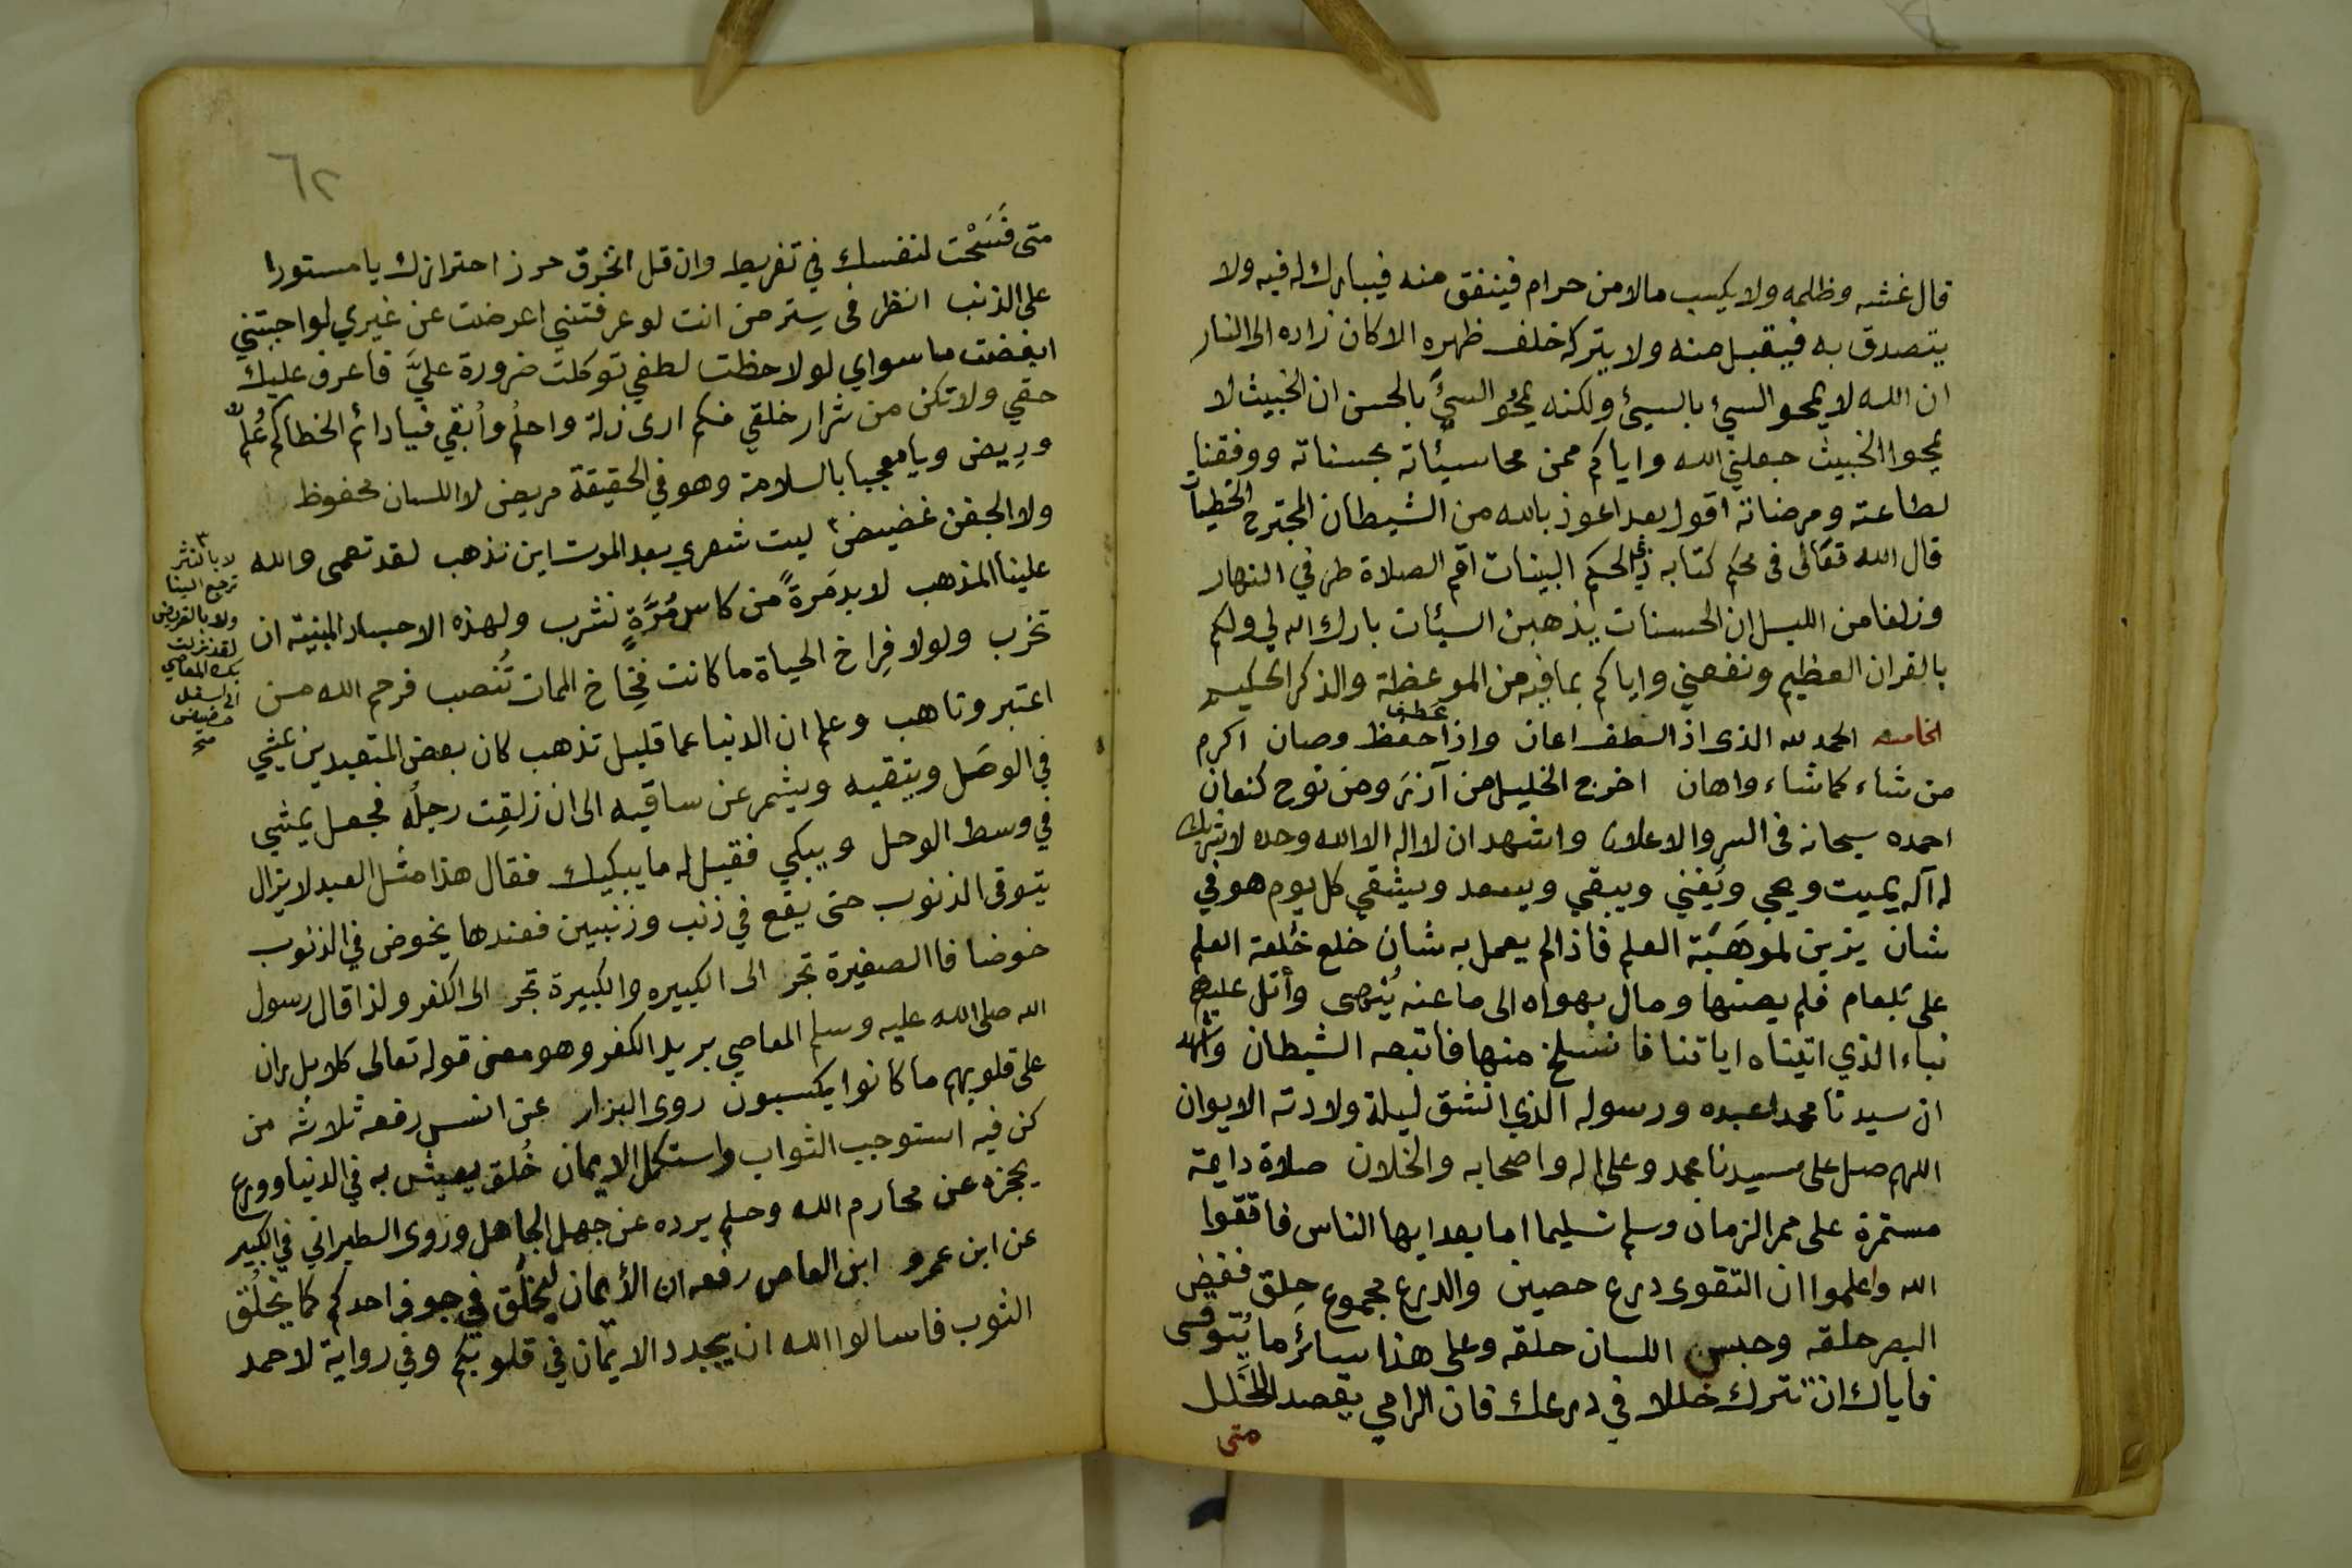 قال غشه وظلمه ولا يكسب مالا من حرام فينفق منه فيبارك له فيه ولا
يتصدق به فيقبل منه ولا يتركه خلف ظهره الا كان زاده الى النار
ان الله لا يمحو السيء بالسيئ ولكنه يمحُو السيَّئ بالحسن ان الخبيث لا
يمحوا الخبيث جعلني الله واياكم ممن محا سيئاته بحسناته ووفقنا
لطاعته ومرضاته اقول بعد اعوذ بالله من الشيطان المجترح الخطيات
قال الله تعالى فى محكم كتابه ذي الحكم البينات اقم الصلاة طرفي النهار
وزلفا من الليل ان الحسنات يذهبن السيئات بارك الله لي ولكم
بالقران العظيم ونفعني واياكم بما فيه من الموعظة والذكر الحكيم
الخامسه الحمد لله الذى اذا لطف اعان واذا عطف حفظ وصان اكرم
من شاء كما شاء واهان اخرج الخليل من آزر ومن نوح كنعان
احمده سبحانه فى السر والاعلان واشهد ان لا اله الا الله وحده لا شريك
له آله يميت ويحي ويفني ويبقي ويسعد ويشقي كل يوم هو في
شان يزين لموهَبَة العلم فاذا لم يعمل به شان خلع خلعة العلم
على بلعام فلم يصنها ومال بهواه الى ما عنه يُنهى وأتل عليهم
نباء الذي اتيناه اياتنا فانسلخ منها فاتبعه الشيطان واشهد
ان سيدنا محمدا عبده ورسوله الذي انشق ليلة ولادته الايوان
اللهم صل على سيدنا محمد وعلى اله واصحابه والخلان صلاة دائمة
مستمرة على ممر الزمان وسلم تسليما اما بعد ايها الناس فاتقوا
الله واعلموا ان التقوى درع حصين والدرع مجموع حِلق فغض
البصر حلقه وحبس اللسان حلقه وعلى هذا سائر ما يُتوقى
فاياك ان تترك خللا في درعك فان الرامي يقصد الخَلل
متى
٦٢
متى فَسَحْت لنفسك في تفريط وان قل انخرق حرز احترازك يا مستورا
على الذنب انظر فى سِتر من انت لو عرفتني اعرضت عن غيري لو احببتني
ابغضت ما سواي لو لاحظت لطفي توكلت ضرورة عليَّ فاعرف عليك
حقي ولا تكن من شرار خلقي فكم ارى زلة واحلُم وأبقي فيا دائم الخطاكم
وريض ويا معجبا بالسلامة وهو في الحقيقة مريض لا اللسان محفوظ
ولا الجفن غضيض ٣ ليت شعري بعد الموت اين تذهب لقد تعمى والله
علينا المذهب لا بد مَرةً من كاسٍ مُرَّةٍ نشرب ولهذه الاجساد المبنيّه ان
تخرب ولولا فِراخ الحياة ما كانت فِخاخ الممات تُنصب فرحم الله من
اعتبر وتاهب وعلم ان الدنيا عما قليل تذهب كان بعض المتعبدين يمشي
في الوحَل ويتقيه ويشمر عن ساقيه الى ان زلقِت رجلُه فجعل يمشي
في وسط الوحل ويبكي فقيل له ما يبكيك فقال هذا مثل العبد لا يزال
يتوقى الذنوب حتى يقع في ذنب وذنبين فعندها يخوض في الذنوب
خوضا فا الصغيرة تجر الى الكبيره والكبيرة تجر الى الكفر ولذا قال رسول
الله صلى الله عليه وسلم المعاصي بريد الكفر وهو معنى قوله تعالى كلا بل ران
على قلوبهم ما كانوا يكسبون روى البزار عن انس رفعه ثلاثه من
كن فيه استوجب الثواب واستكمل الايمان خُلق يعيش به في الدنيا وورع
يحجزه عن محارم الله وحلم يرده عن جهل الجاهل وروى الطبراني في الكبير
عن ابن عمرو ابن العاص رفعه ان الأيمان ليخلُق في جوف احدكم كما يخلُق
الثوب فاسالوا الله ان يجدد الايمان في قلوبكم وفي رواية لاحمد
٣
لا بالنثر
ترجع الينا
ولا بالقريض
لقد نزلت
بك المعاصي
الى اسفل
حضيض
صح